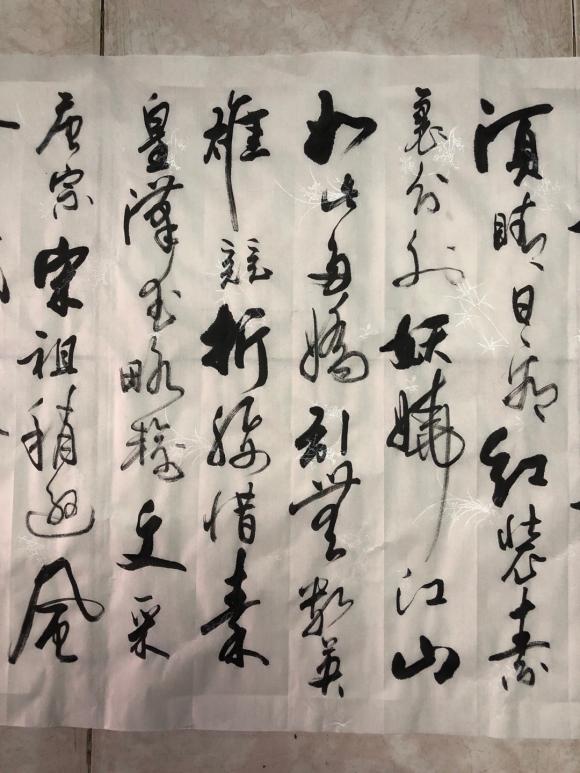 須晴日看紅裝素
裹分外妖嬈江山
如此多嬌引無數英
雄競折腰惜秦
皇漢武略輸文采
唐宗宋祖稍遜風